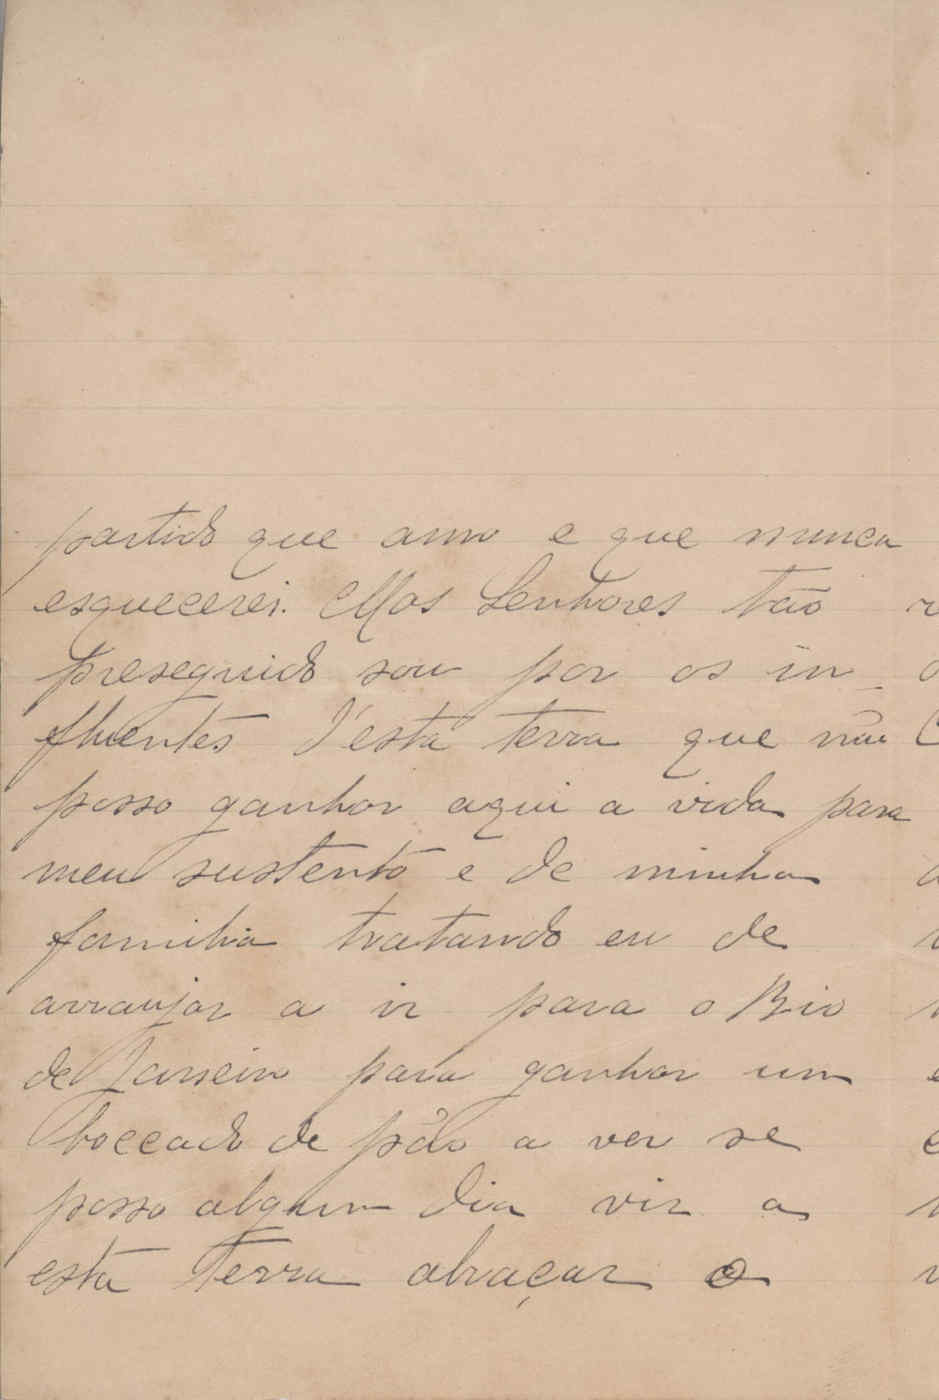 partido que amo e que nunca
esquecerei. Mas Senhores tão
preseguido sou por os in_
fluentes d'esta terra que não
posso ganhar aqui a vida para
meu sustento e de minha
familia tratando eu de
arranjar a ir para o Rio
de Janseiro para ganhar um
boccado de pão a ver se
posso algum dia vir a
esta terra abraçar o